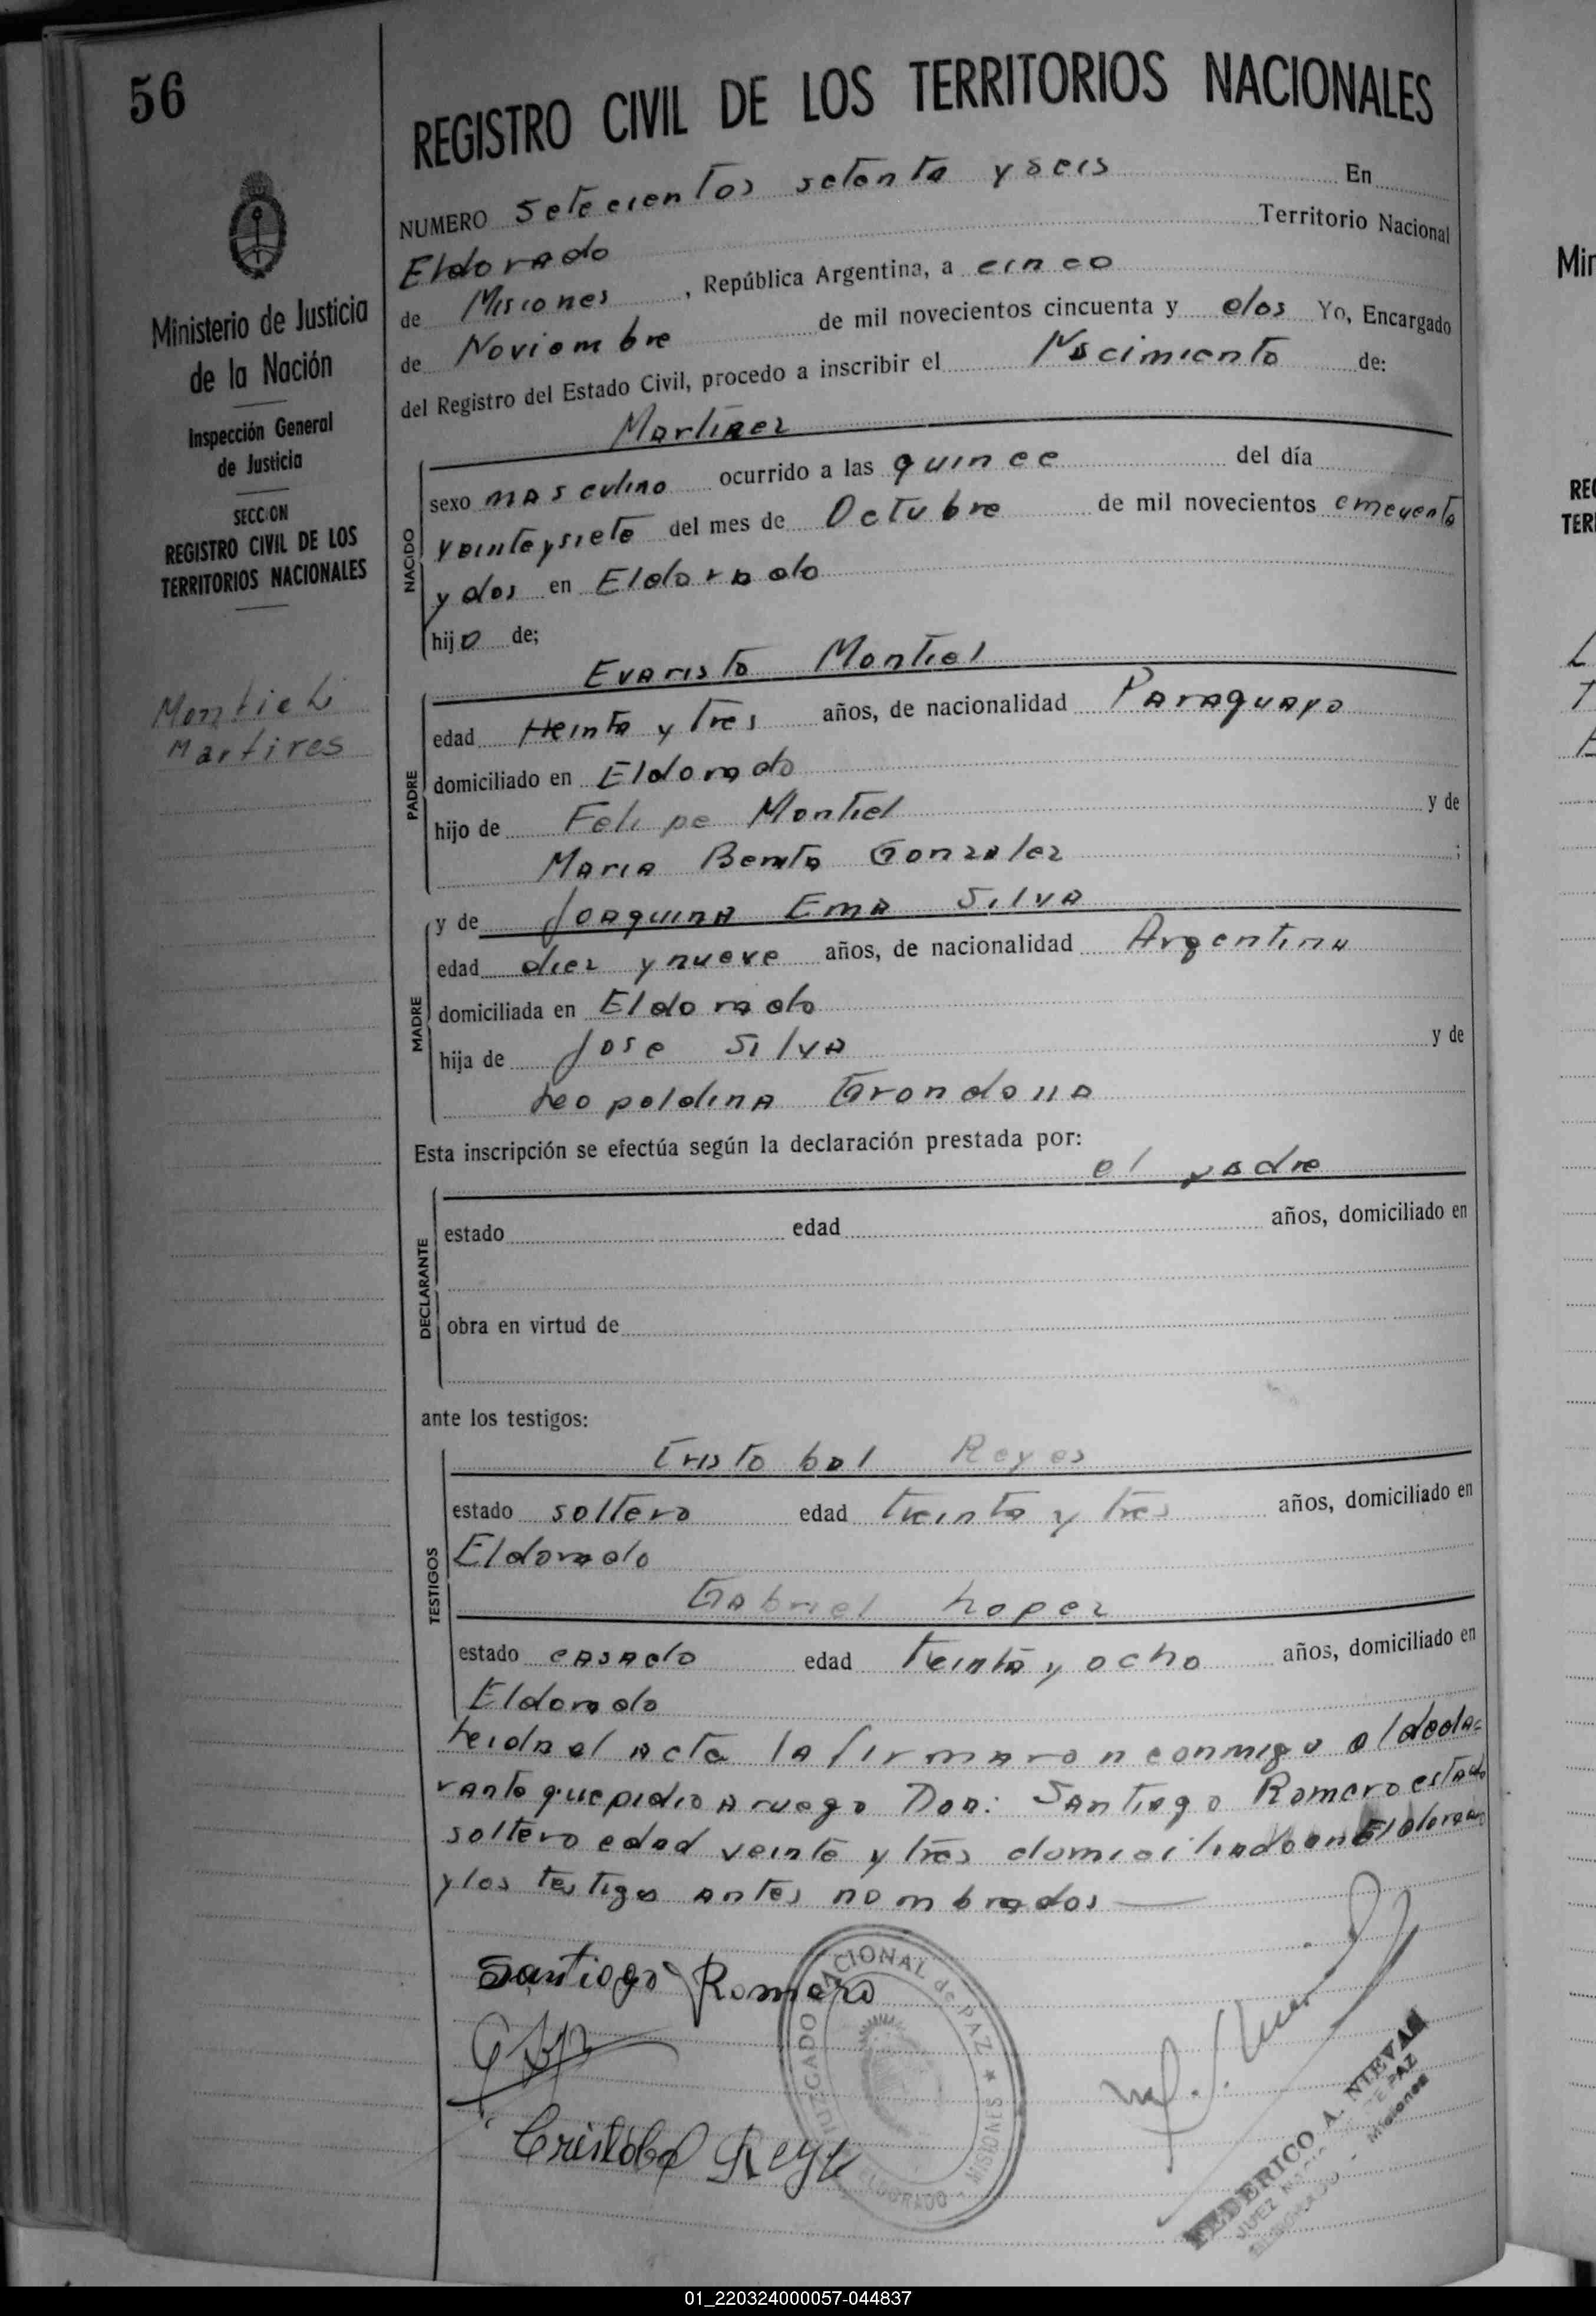 56
REGISTRO CIVIL DE LOS TERRITORIOS NACIONALES
NUMERO Setecientos setenta y seis En
Eldorado Territorio Nacional
de Misiones, República Argentina, a cinco
de Noviembre de mil novecientos cincuenta y dos Yo, Encargado
del Registro del Estado Civil, procedo a inscribir el Nacimiento de:
Ministerio de Justicia
de la Nación
Inspección General
de Justicia
SECCION
REGISTRO CIVIL DE LOS
TERRITORIOS NACIONALES
Montiel
Martires
NACIDO
sexo masculino ocurrido a las quince del día
veinte y siete del mes de Octubre de mil novecientos cincuenta
y dos en Eldorado
hijo de;
Evaristo Montiel
PADRE
edad treinta y tres años, de nacionalidad Paraguayo
domiciliado en Eldorado
hijo de Felipe Montiel y de
Maria Benita Gonzalez ;
y de Joaquina Ema Silva
MADRE
edad diez y nueve años, de nacionalidad Argentina
domiciliada en Eldorado
hija de Jose Silva y de
Leopoldina Grondona
Esta inscripción se efectúa según la declaración prestada por:
el padre
DECLARANTE
estado edad años, domiciliado en
obra en virtud de
ante los testigos:
Cristobal Reyes
TESTIGOS
estado soltero edad treinta y tres años, domiciliado en
Eldorado
Gabriel Lopez
estado casado edad treinta y ocho años, domiciliado en
Eldorado
Leida el acta la firmaron conmigo el decla=
rante que pidio a ruego Don: Santiago Romero estado
soltero edad veinte y tres domiciliado en Eldorado
y los testigo antes nombrados
Santiago Romero
Cristobal Reyes
JUZGADO NACIONAL de PAZ ★ MISIONES - ELDORADO
FEDERICO A. NIEVAS
JUEZ NACIONAL DE PAZ
ELDORADO - Misiones
Min
REG
TER
01_220324000057-044837